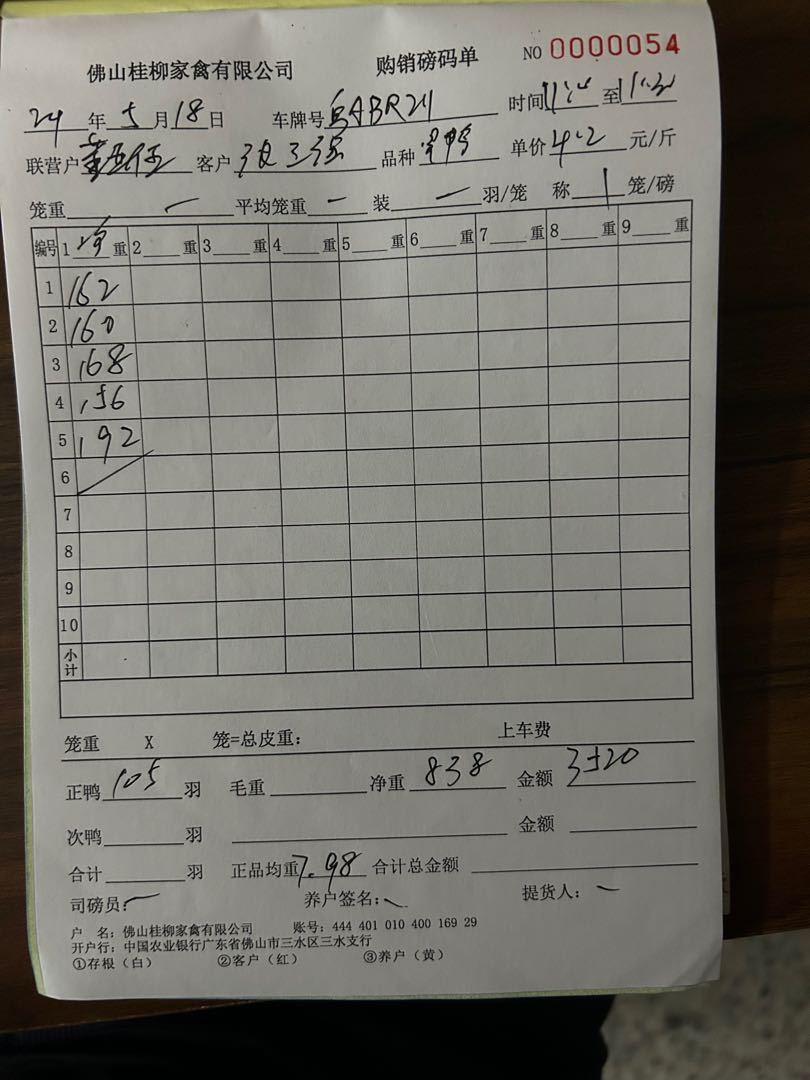 佛山桂柳家禽有限公司 购销磅码单 NO 0000054
24年5月18日 车牌号 ABR24 时间 至
联营户 客户 品种 单价4.2元/斤
笼重 一 平均笼重 一 装 一 羽/笼 称 1 笼/磅
编号 1净重 2重 3重 4重 5重 6重 7重 8重 9重
1 162
2 160
3 168
4 156
5 192
6
7
8
9
10
小计
笼重 X 笼=总皮重: 上车费
正鸭105羽 毛重 净重838 金额3520
次鸭 羽 金额
合计 羽 正品均重7.98 合计总金额
司磅员: 养户签名: 提货人:
户 名: 佛山桂柳家禽有限公司 账号: 444 401 010 400 169 29
开户行: 中国农业银行广东省佛山市三水区三水支行
①存根（白） ②客户（红） ③养户（黄）